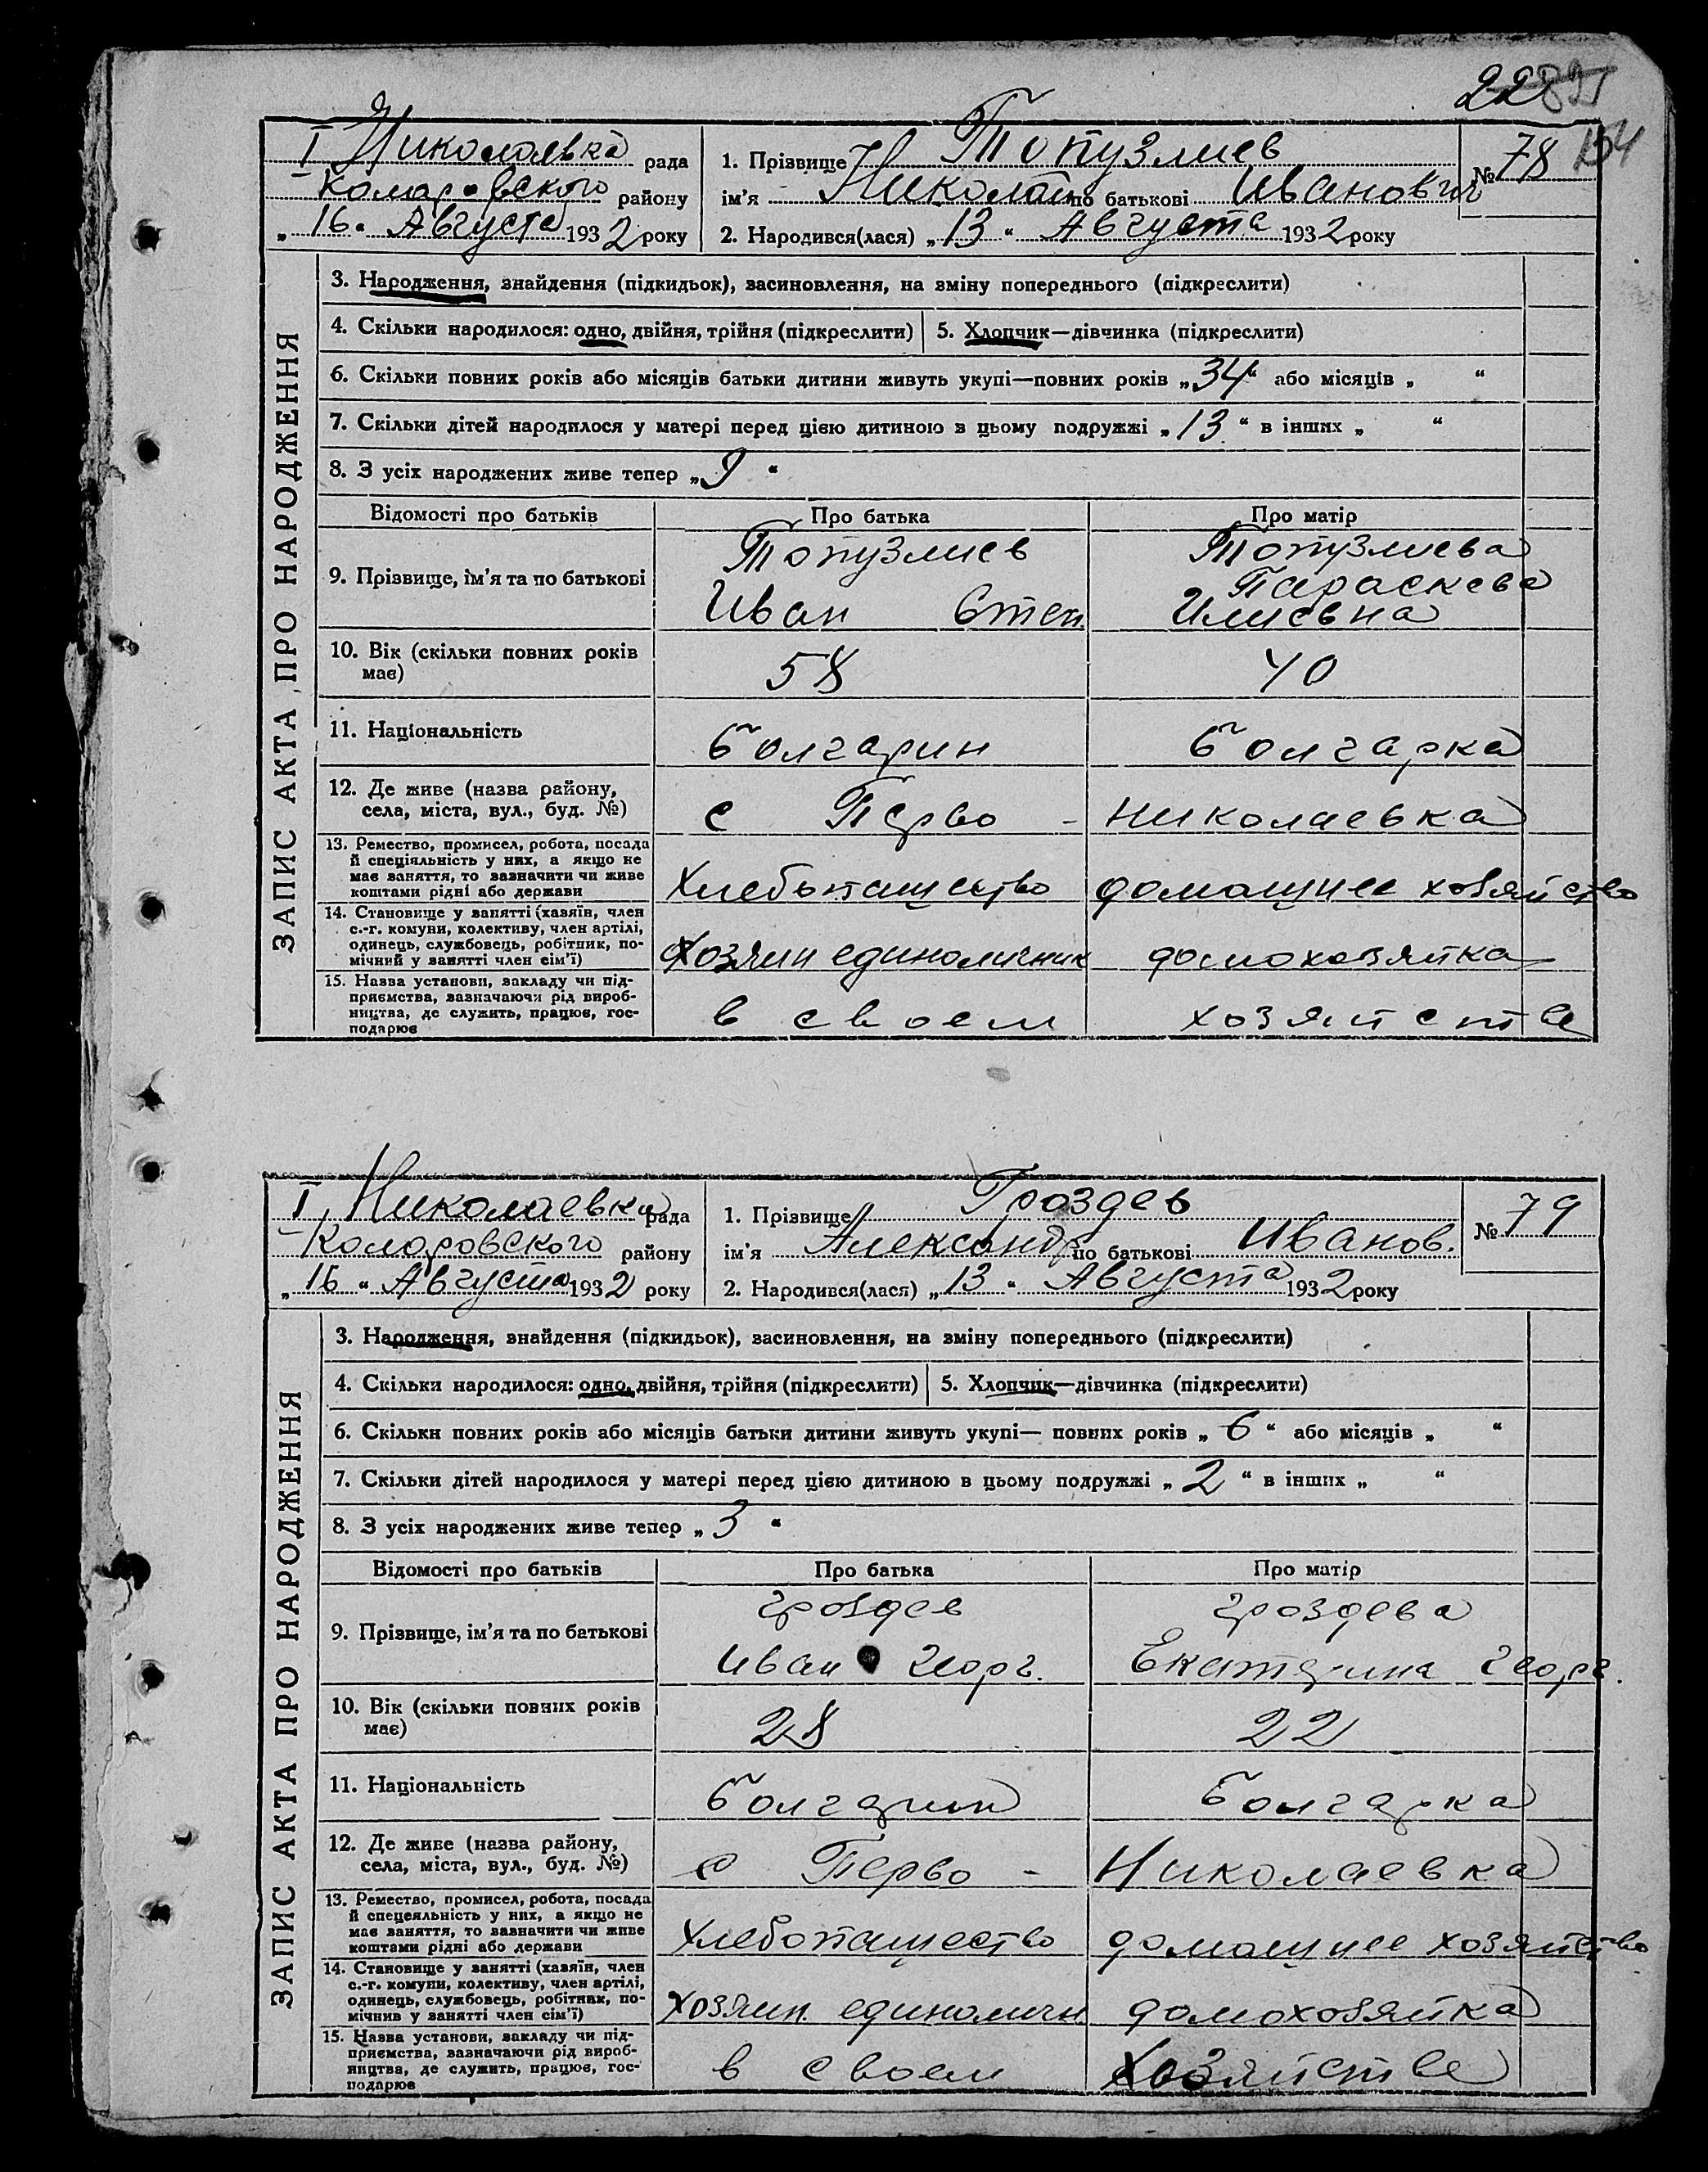 228
154
I Николаевка рада
Коларовского району
„16“ Августа 1932 року
1. Прізвище Топузлиев
ім'я Николай по батькові Иванович
2. Народився(лася) „13“ Августа 1932 року
№ 78
ЗАПИС АКТА ПРО НАРОДЖЕННЯ
3. Народження, знайдення (підкидьок), засиновлення, на зміну попереднього (підкреслити)
4. Скільки народилося: одно, двійня, трійня (підкреслити) 5. Хлопчик—дівчинка (підкреслити)
6. Скільки повних років або місяців батьки дитини живуть укупі—повних років „34“ або місяців „ “
7. Скільки дітей народилося у матері перед цією дитиною в цьому подружжі „13“ в інших „ “
8. З усіх народжених живе тепер „9“
Відомості про батьків Про батька Про матір
9. Прізвище, ім'я та по батькові
Топузлиев
Иван Степ.
Топузлиева
Параскева
Илиевна
10. Вік (скільки повних років
має)
58 40
11. Національність болгарин болгарка
12. Де живе (назва району,
села, міста, вул., буд. №)
с Перво - николаевка
13. Ремество, промисел, робота, посада
й спеціяльність у них, а якщо не
має заняття, то зазначити чи живе
коштами рідні або держави
Хлебопашество домашнее хозяйство
14. Становище у занятті (хазяїн, член
с.-г. комуни, колективу, член артілі,
одинець, службовець, робітник, по-
мічний у занятті член сім'ї)
Хозяин единоличник домохозяйка
15. Назва установи, закладу чи під-
приємства, зазначаючи рід вироб-
ництва, де служить, працює, гос-
подарює
в своем хозяйстве
I Николаевка рада
Коларовского району
„16“ Августа 1932 року
1. Прізвище Гроздев
ім'я Александр по батькові Иванов.
2. Народився(лася) „13“ Августа 1932 року
№ 79
ЗАПИС АКТА ПРО НАРОДЖЕННЯ
3. Народження, знайдення (підкидьок), засиновлення, на зміну попереднього (підкреслити)
4. Скільки народилося: одно, двійня, трійня (підкреслити) 5. Хлопчик—дівчинка (підкреслити)
6. Скільки повних років або місяців батьки дитини живуть укупі— повних років „6“ або місяців „ “
7. Скільки дітей народилося у матері перед цією дитиною в цьому подружжі „2“ в інших „ “
8. З усіх народжених живе тепер „3“
Відомості про батьків Про батька Про матір
9. Прізвище, ім'я та по батькові
гроздев
Иван Георг.
гроздева
Екатерина Георг.
10. Вік (скільки повних років
має)
28 22
11. Національність болгарин болгарка
12. Де живе (назва району,
села, міста, вул., буд. №)
с Перво - Николаевка
13. Ремество, промисел, робота, посада
й спецеяльність у них, а якщо не
має заняття, то зазначити чи живе
коштами рідні або держави
хлебопашество домашнее хозяйство
14. Становище у занятті (хазяїн, член
с.-г. комуни, колективу, член артілі,
одинець, службовець, робітник, по-
мічний у занятті член сім'ї)
хозяин единоличн. домохозяйка
15. Назва установи, закладу чи під-
приємства, зазначаючи рід вироб-
ництва, де служить, працює, гос-
подарює
в своем хозяйстве